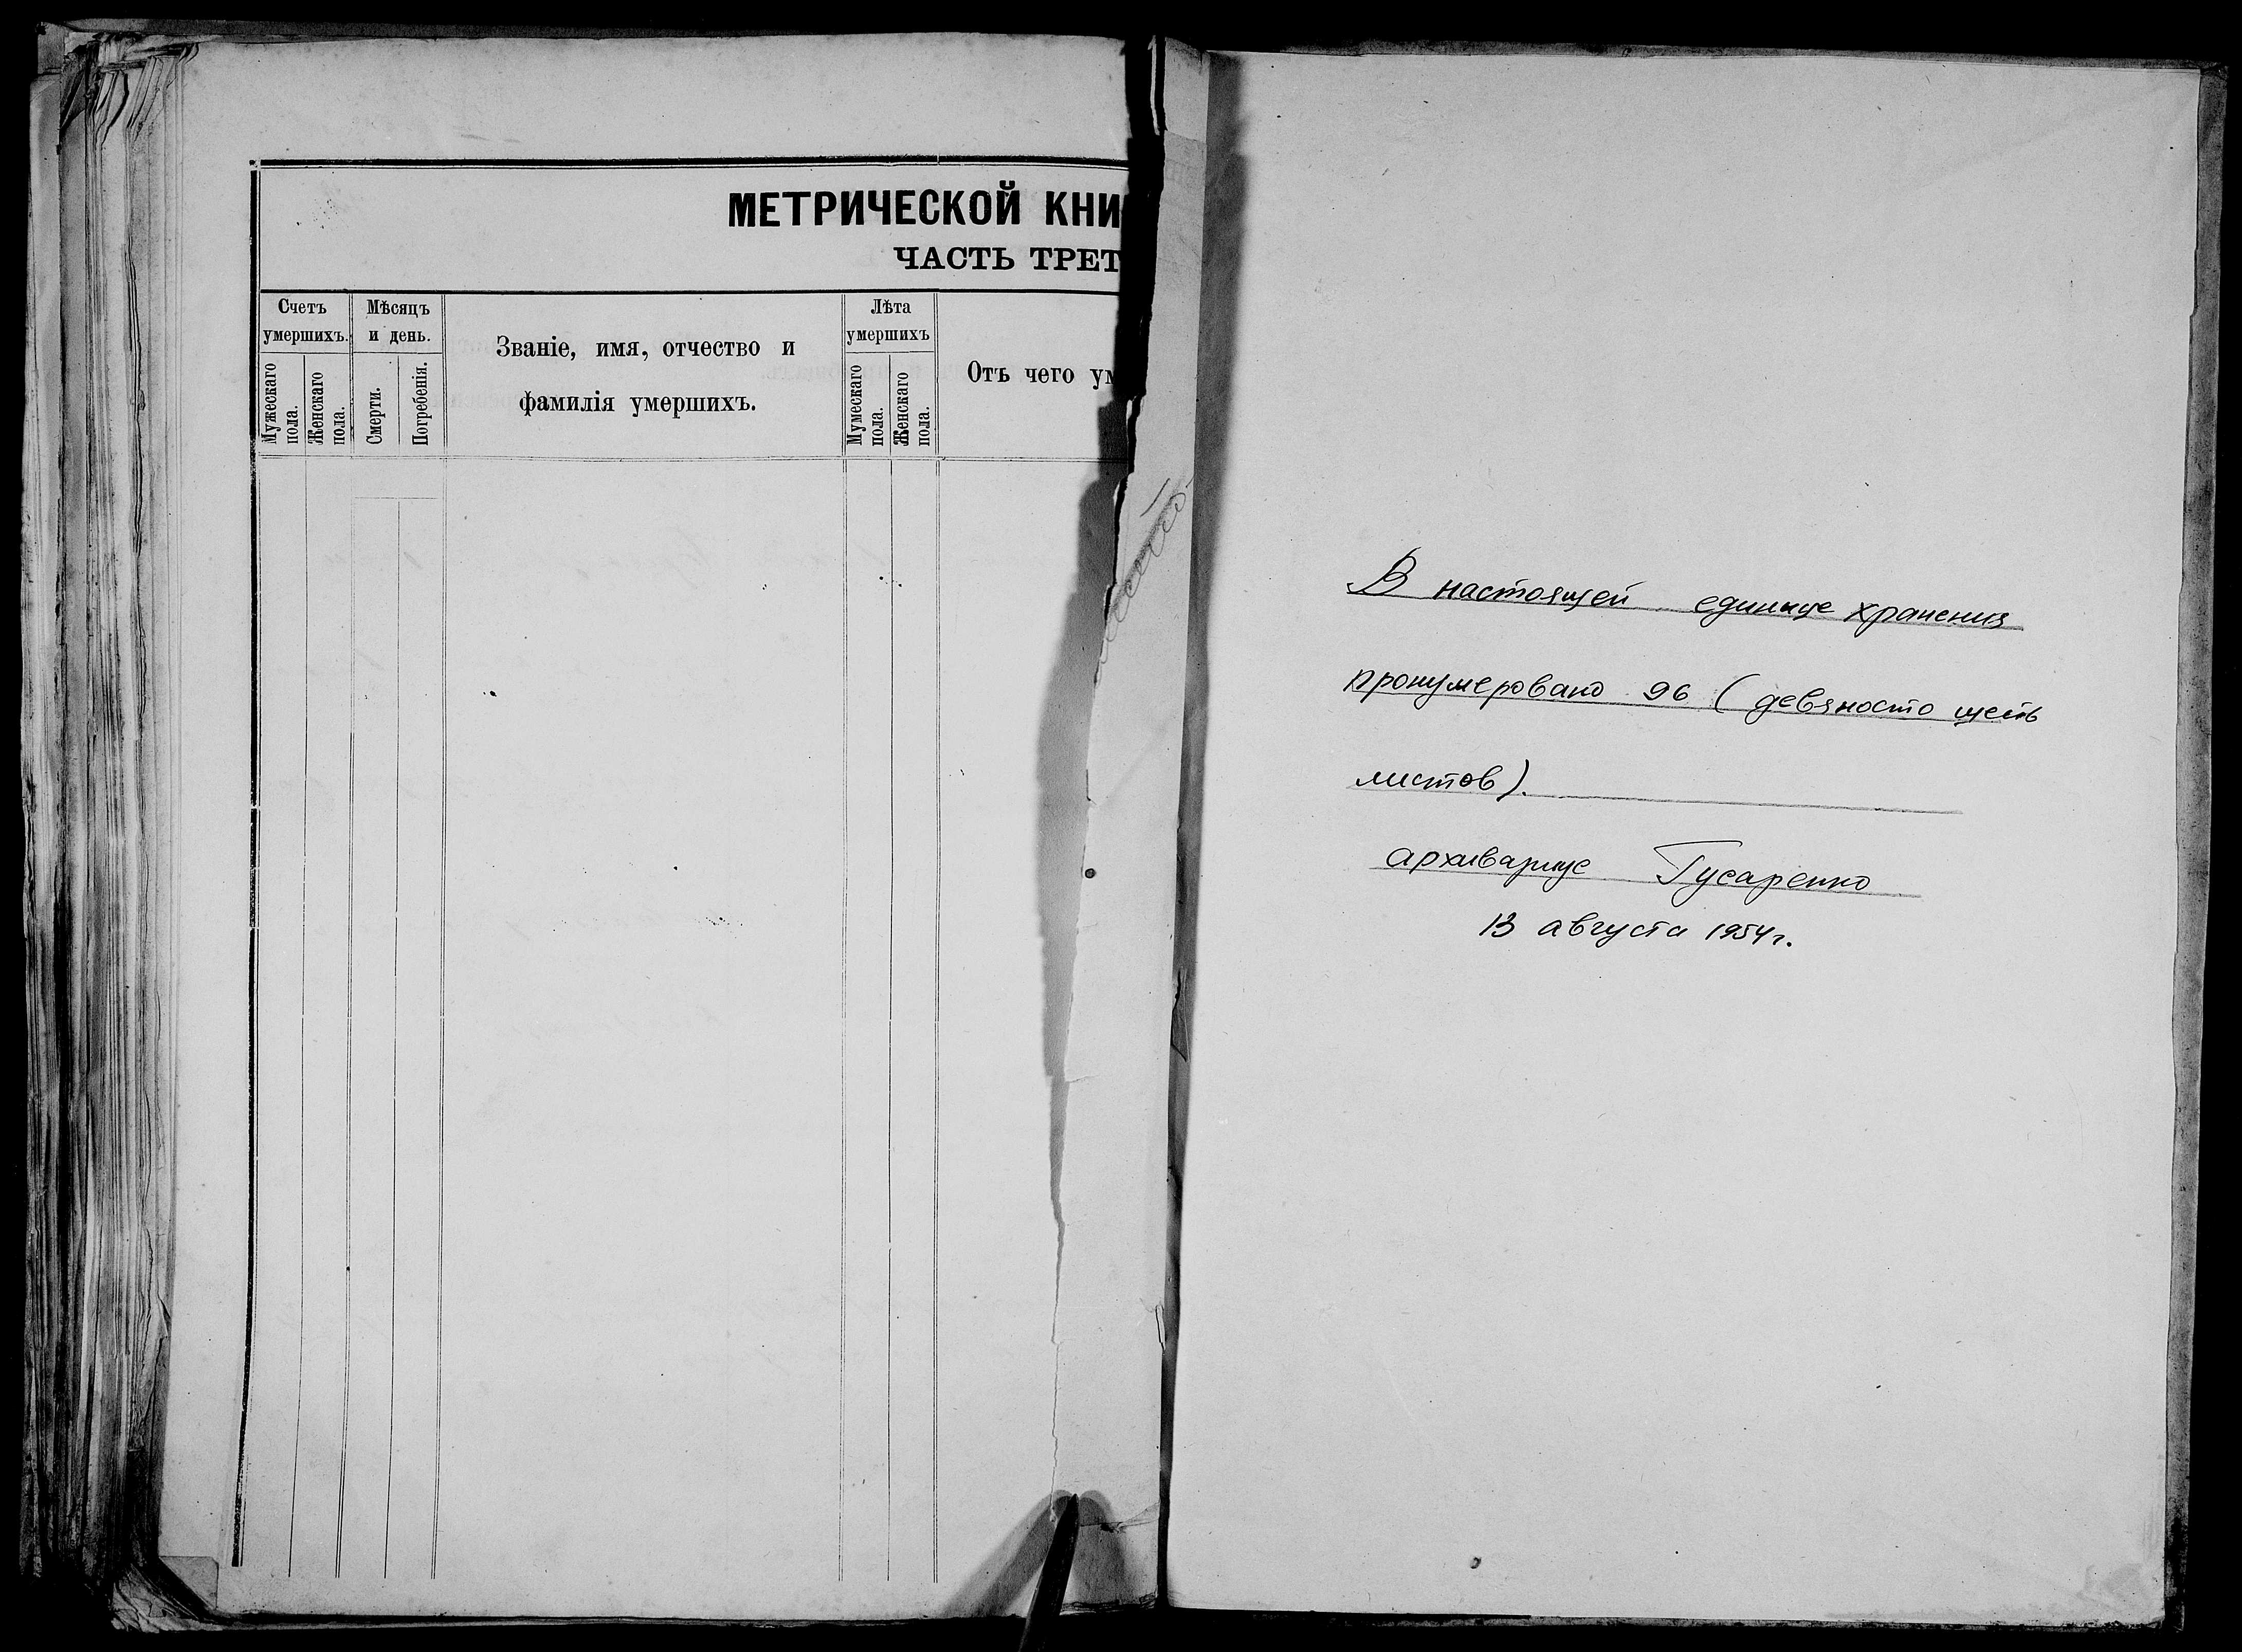 МЕТРИЧЕСКОЙ КНИ
ЧАСТЬ ТРЕТ
Счетъ
умершихъ.
Мужескаго
пола.
Женскаго
пола.
Мѣсяцъ
и день.
Смерти.
Погребенія.
Званіе, имя, отчество и
фамилія умершихъ.
Лѣта
умершихъ
Мумескаго
пола.
Женскаго
пола.
Отъ чего ум
В настоящей единице хранения
пронумеровано 96 (девяносто шесть
листов).
архивариус Гусаренко
13 августа 1954 г.